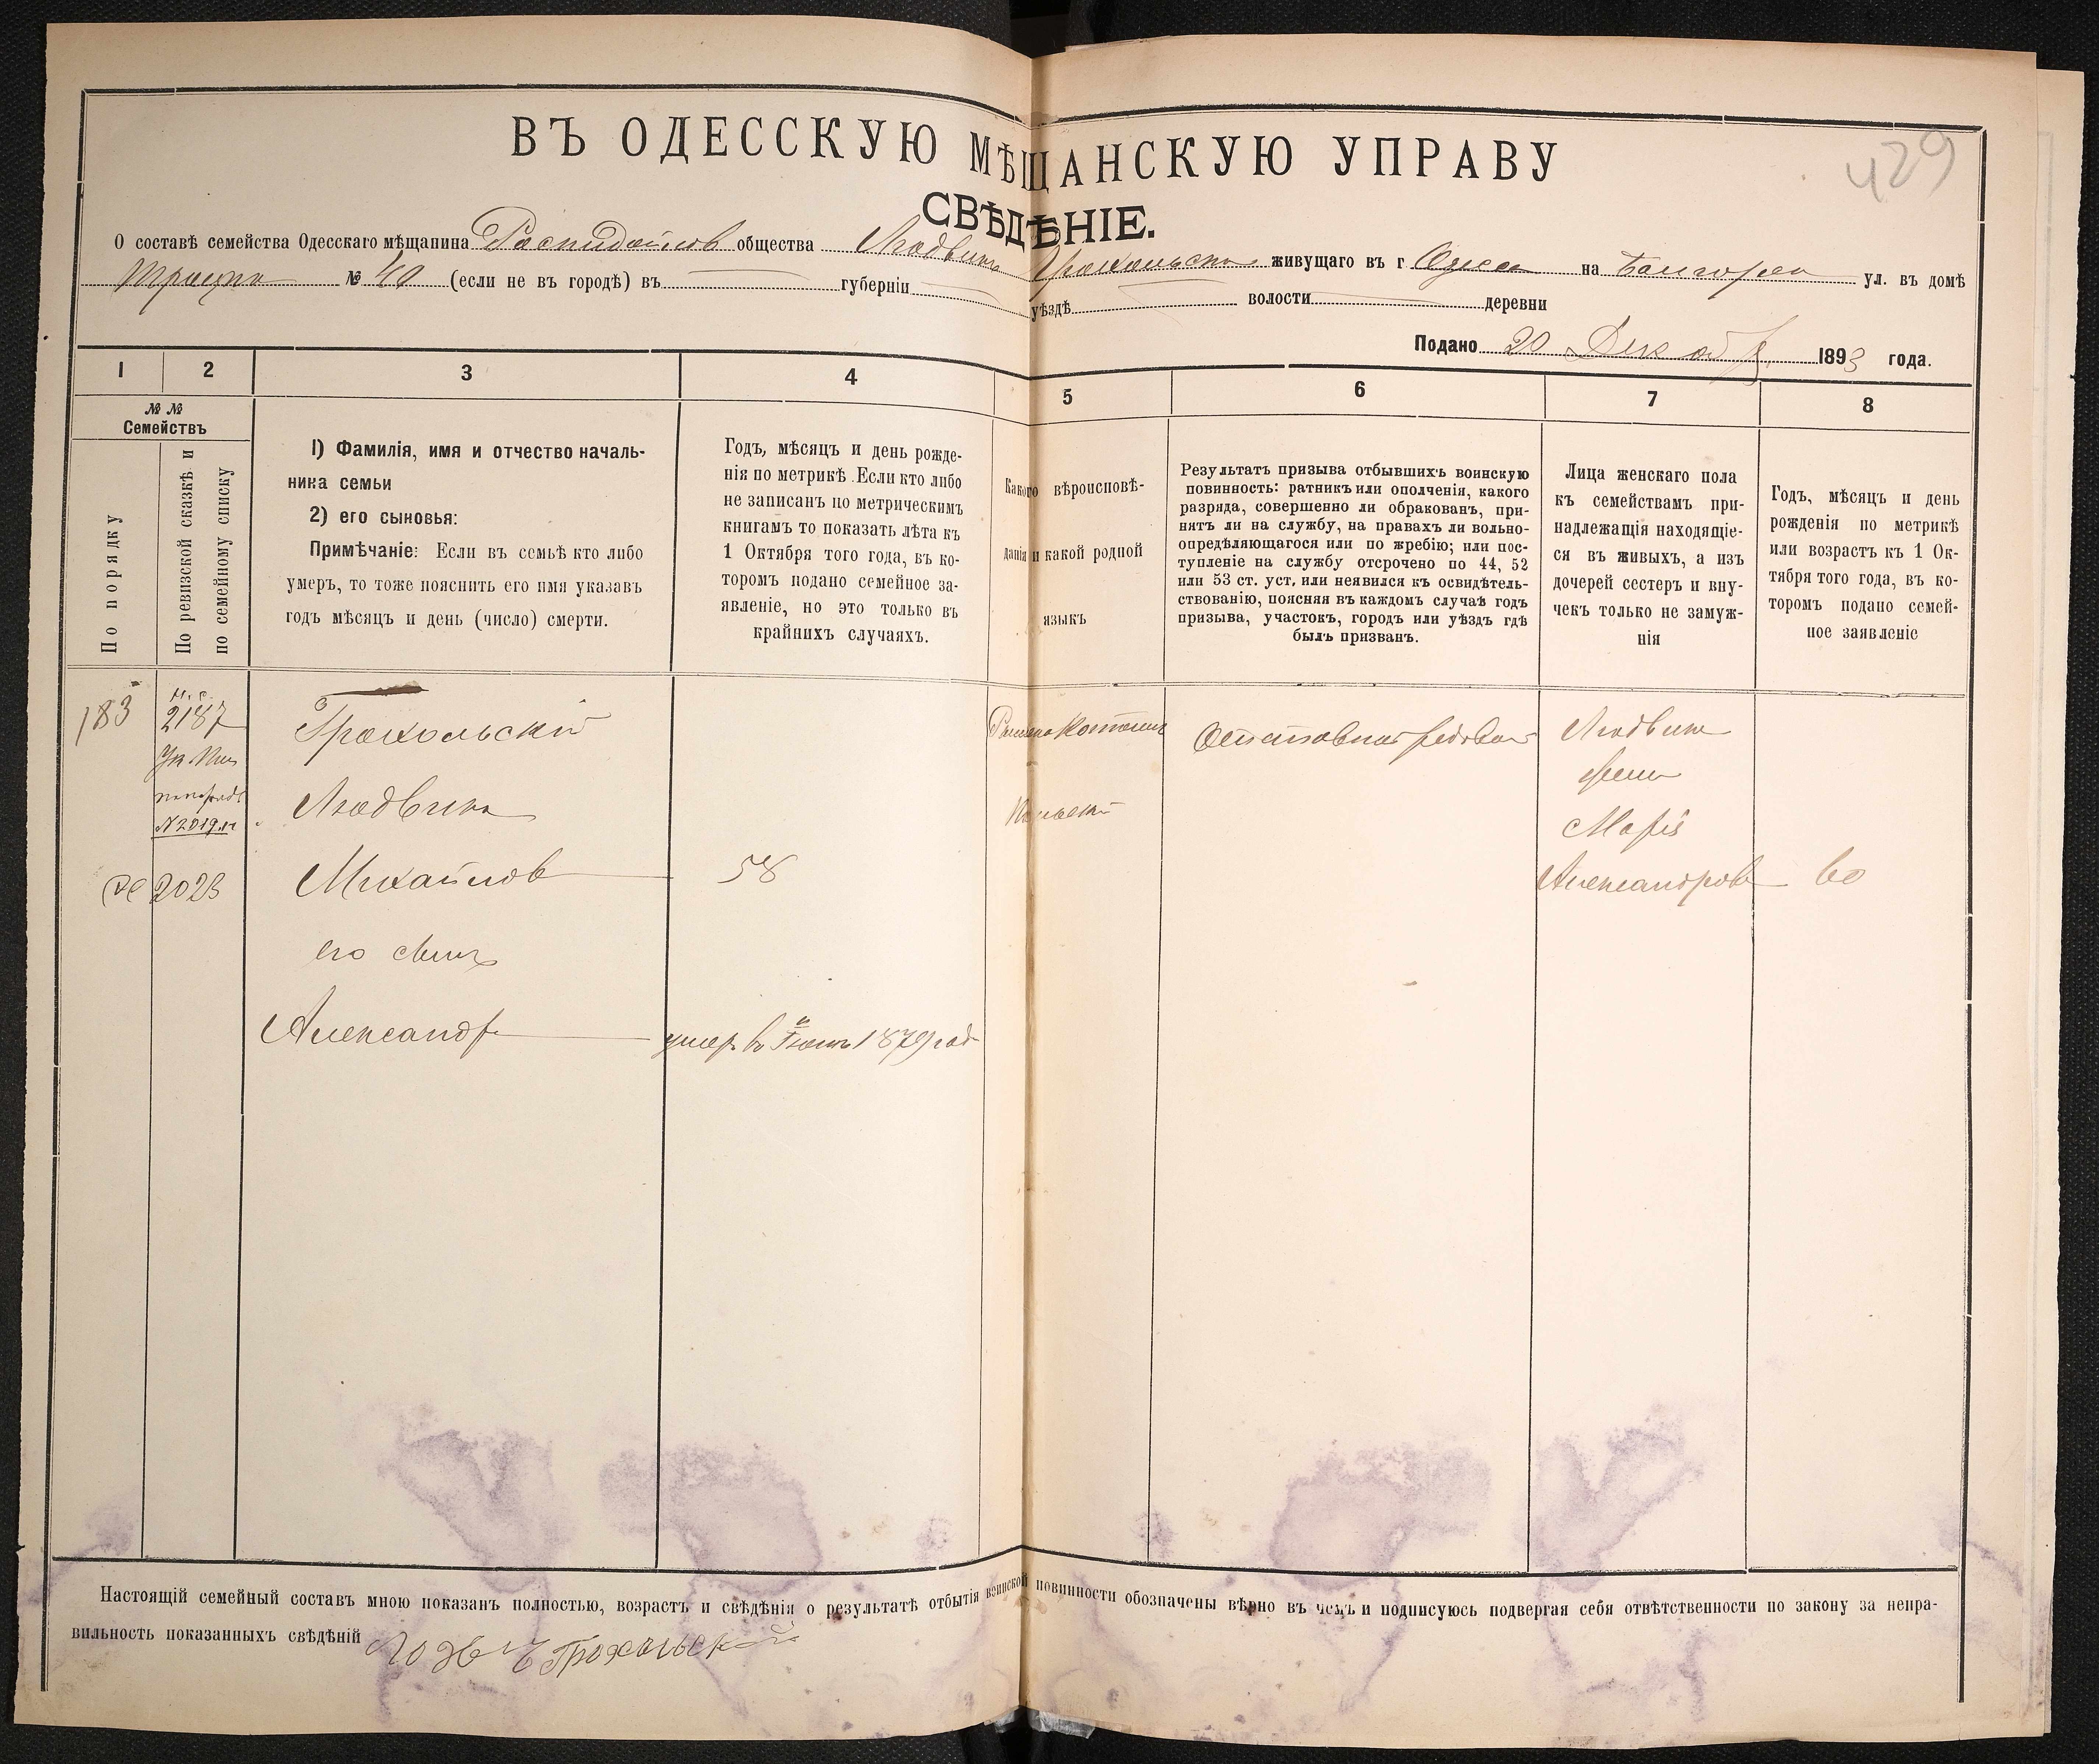 429
ВЪ ОДЕССКУЮ МѢЩАНСКУЮ УПРАВУ
СВѢДѢНІЕ.
О составѣ семейства Одесскаго мѣщанина общества Людвикъ Грохольскій живущаго въ г. Одесса на Балковской ул. въ домѣ
№ 40 (если не въ городѣ) въ губерніи уѣздѣ волости деревни
Подано 20 Декабр. 1893 года.
1 2 3 4 5 6 7 8
№ №
Семействъ
По порядку
По ревизской сказкѣ и
по семейному списку
1) Фамилія, имя и отчество началь-
ника семьи
2) его сыновья:
Примѣчаніе: Если въ семьѣ кто либо
умеръ, то тоже пояснить его имя указавъ
годъ мѣсяцъ и день (число) смерти.
Годъ, мѣсяцъ и день рожде-
нія по метрикѣ. Если кто либо
не записанъ по метрическимъ
книгамъ то показать лѣта къ
1 Октября того года, въ ко-
торомъ подано семейное за-
явленіе, но это только въ
крайнихъ случаяхъ.
Какого вѣроисповѣ-
данія и какой родной
языкъ
Результатъ призыва отбывшихъ воинскую
повинность: ратникъ или ополченія, какого
разряда, совершенно ли обракованъ, при-
нятъ ли на службу, на правахъ ли вольно-
опредѣляющагося или по жребію; или пос-
тупленіе на службу отсрочено по 44, 52
или 53 ст. уст, или неявился къ освидѣтель-
ствованію, поясняя въ каждомъ случаѣ годъ
призыва, участокъ, городъ или уѣздъ гдѣ
былъ призванъ.
Лица женскаго пола
къ семействамъ при-
надлежащія находящіе-
ся въ живыхъ, а изъ
дочерей сестеръ и вну-
чекъ только не замуж-
нія
Годъ, мѣсяцъ и день
рожденія по метрикѣ
или возрастъ къ 1 Ок-
тября того года, въ ко-
торомъ подано семей-
ное заявленіе
183 2187 Грохольскій Римско Католик Отставной рядовой Людвика
жена
№ 2019 Людвикъ Польскій Марія
2023 Михайловъ 58 Александрова 60
его сынъ
Александръ умеръ въ Іюнѣ 1879 год
Настоящій семейный составъ мною показанъ полностью, возрастъ и свѣдѣнія о результатѣ отбытія воинской повинности обозначены вѣрно въ чемъ и подписуюсь подвергая себя отвѣтственности по закону за непра-
вильность показанныхъ свѣдѣній Людвикъ Грохольскій